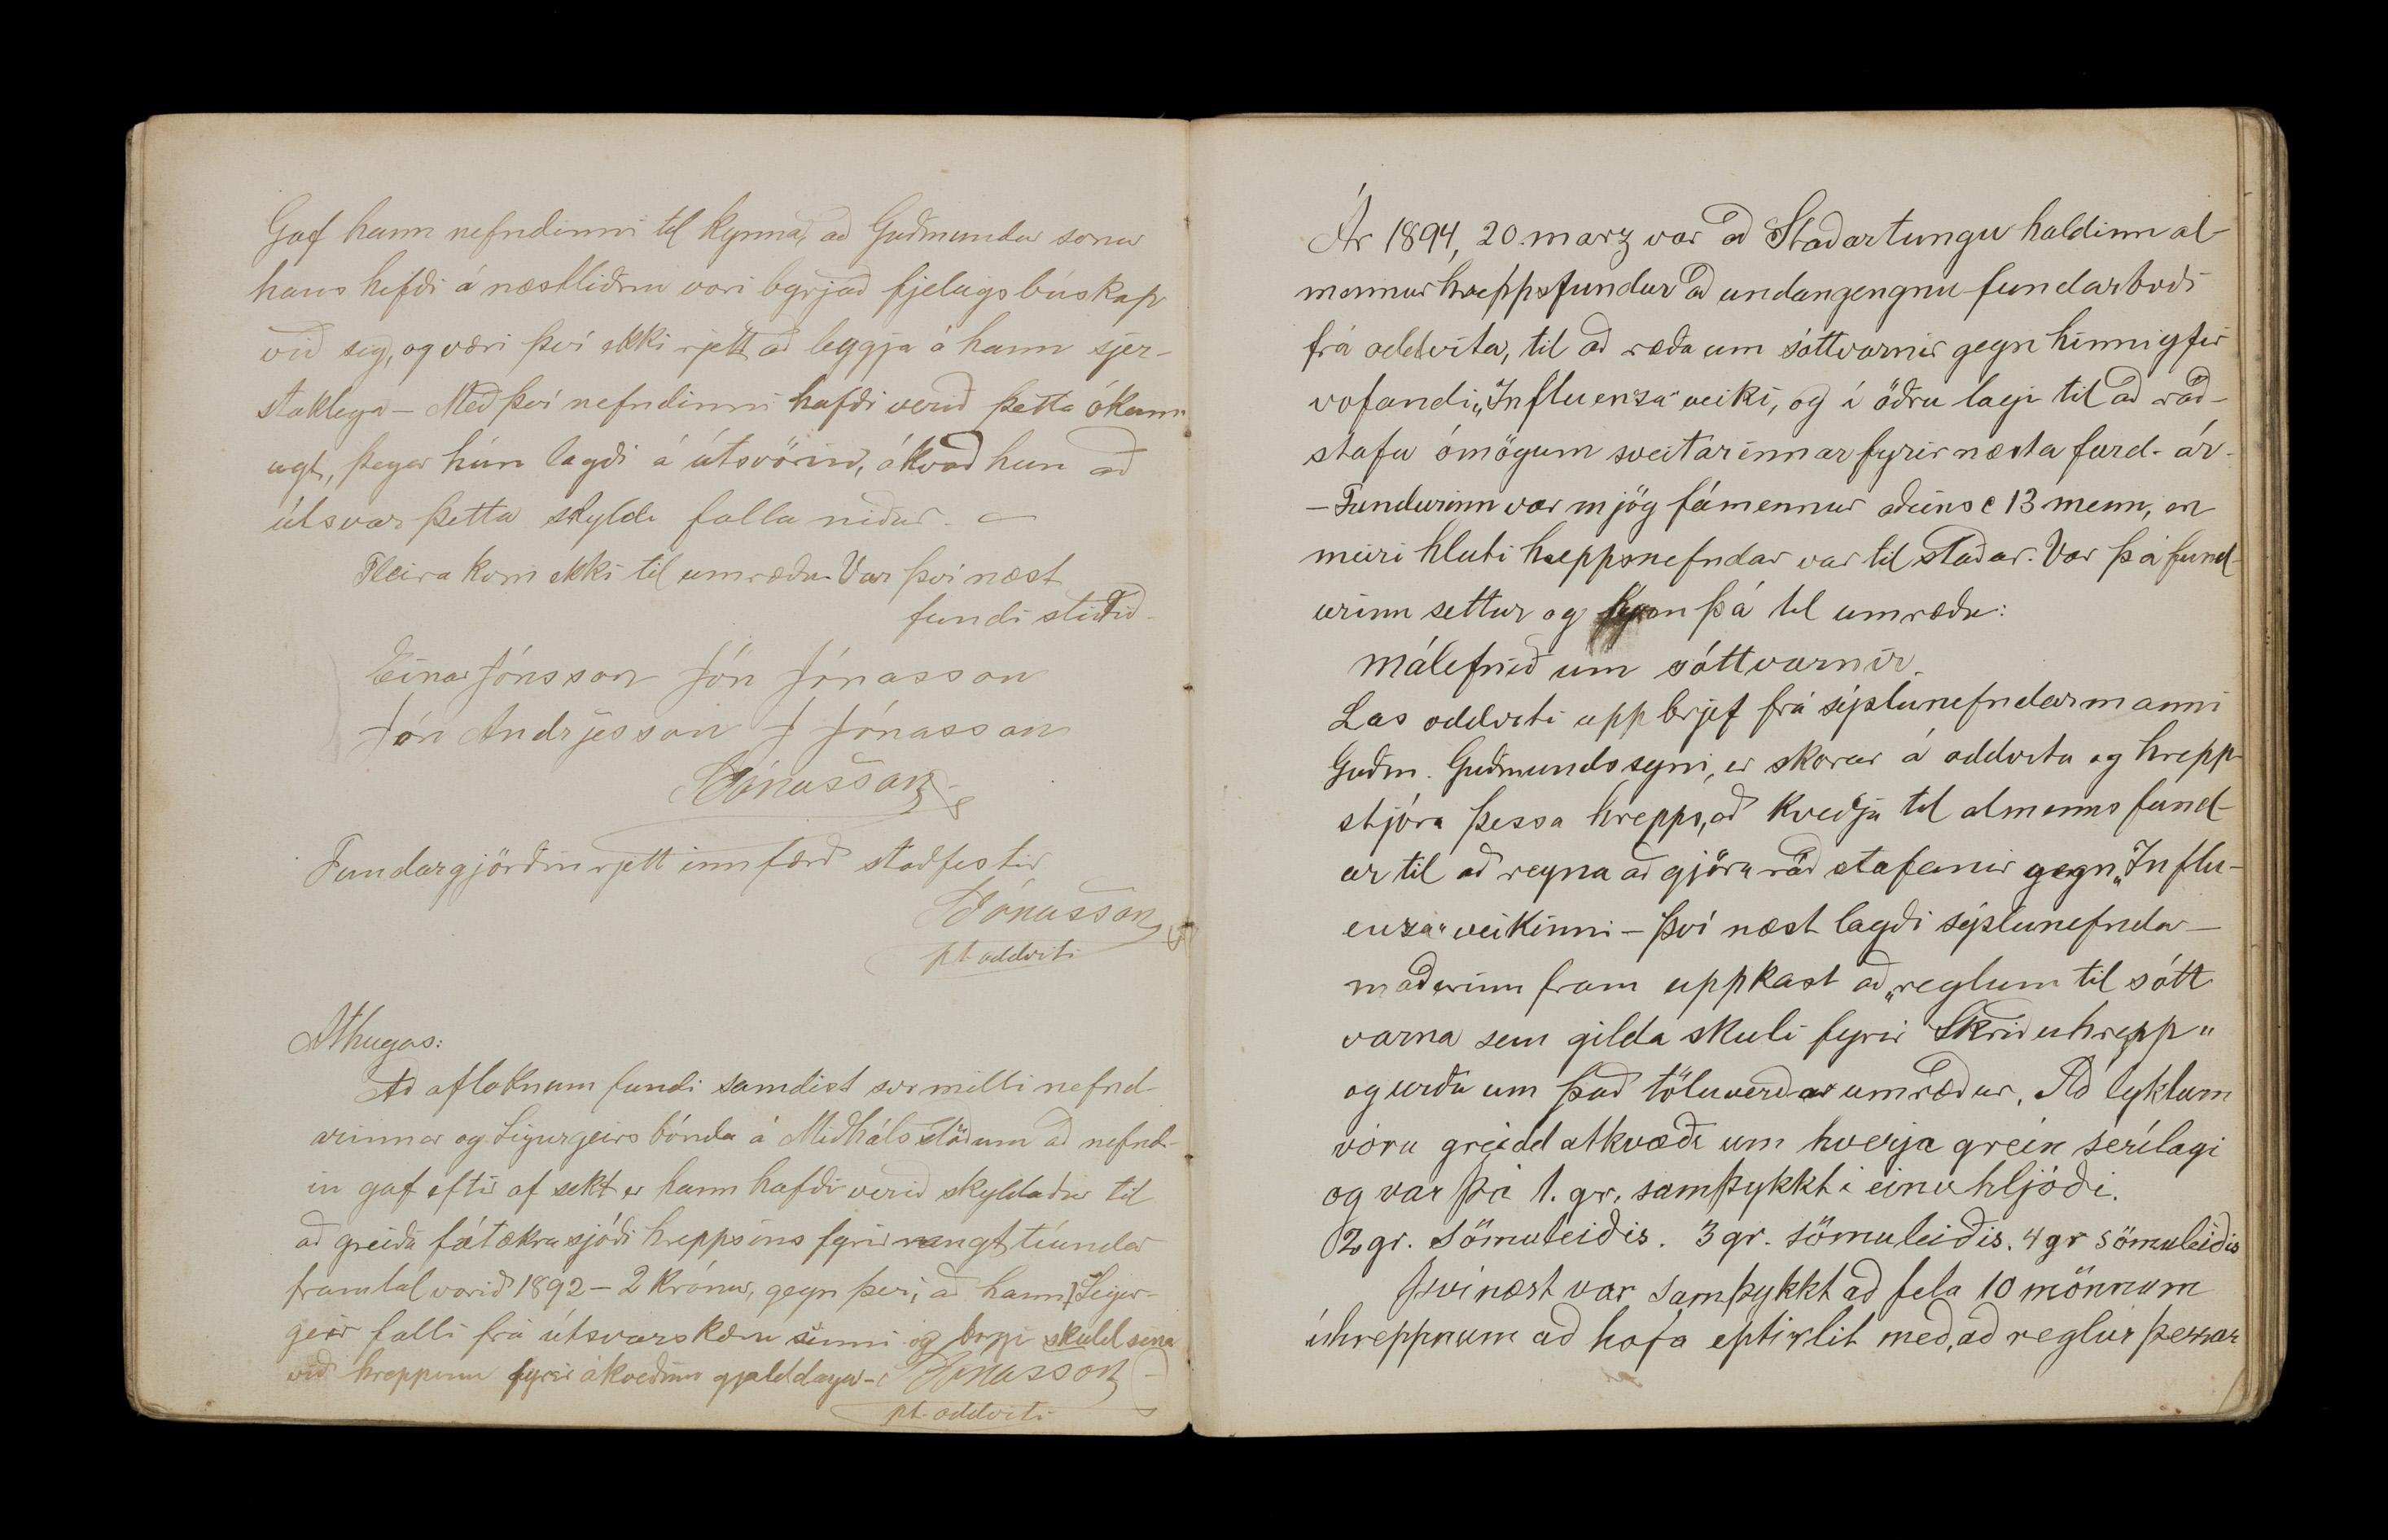 Gaf hann nefndinni til kynna, að Guðmundur sonur
hans hefði á næstliðnu vori byrjað fjelagsbúskap
við sig, og væri því ekki rjett að leggja á hann sjer-
staklega – Með því nefndinni hafði verið þetta ókunn
ugt, þegar hún lagði á útsvörin, ákvað hun að
útsvar þetta skyldi falla niður. –
Fleira kom ekki til umræðu. Var því næst
fundi slitið.
Einar Jónsson Jón Jónasson
Jón Andrjesson J Jónasson
Jónasson
Fundargjörðin rjett innfærð staðfestir
Jónasson
pt oddviti
Athugas:
Að afloknum fundi samdist svo milli nefnd-
arinnar og Sigurgeirs bónda á Miðhálsstöðum að nefnd-
in gaf eftir af sekt er hann hafði verið skyldaður til
að greiða fátækrasjóði hreppsins fyrir rangt tíundar
framtal vorið 1892 – 2 krónur, gegn því, að hann, Sigur-
geir falli frá útsvarskæru sinni og borgi skuld sína
við hreppinn fyrir ákveðinn gjalddaga – Jónasson
pt. oddviti
Ár 1894, 20 marz var að Staðartungu haldinn al-
mennur hreppsfundur að undangengnu fundarboði
frá oddvita, til að ræða um sóttvarnir gegn hinni yfir
vofandi „Influenza" veiki, og í öðru lagi til að ráð-
stafa ómögum sveitarinnar fyrir næsta fard. ár.
– Fundurinn var mjög fámennur aðeins c 13 menn, en
meiri hluti hreppsnefndar var til staðar. Var þá fund-
urinn settur og kom þá til umræðu:
Málefnið um sóttvarnir.
Las oddviti upp brjef frá sýslunefndarmanni
Guðm. Guðmundssyni, er skorar á oddvita og hrepp-
stjóra þessa hrepps, að kveðja til almenns fund-
ar til að reyna að gjöra ráðstafanir gegn „Influ-
enza" veikinni – Því næst lagði sýslunefndar-
maðurinn fram uppkast að „reglum til sótt
varna sem gilda skuli fyrir Skriðuhrepp"
og urðu um það töluverðar umræður. Að lyktum
vóru greidd atkvæði um hverja grein serílagi
og var þá 1. gr. samþykkt í einu hljóði.
2 gr. Sömuleiðis. 3 gr. sömuleiðis. 4 gr sömuleiðis
Því næst var samþykkt að fela 10 mönnum
í hreppnum að hafa eptirlit með, að reglur þessar